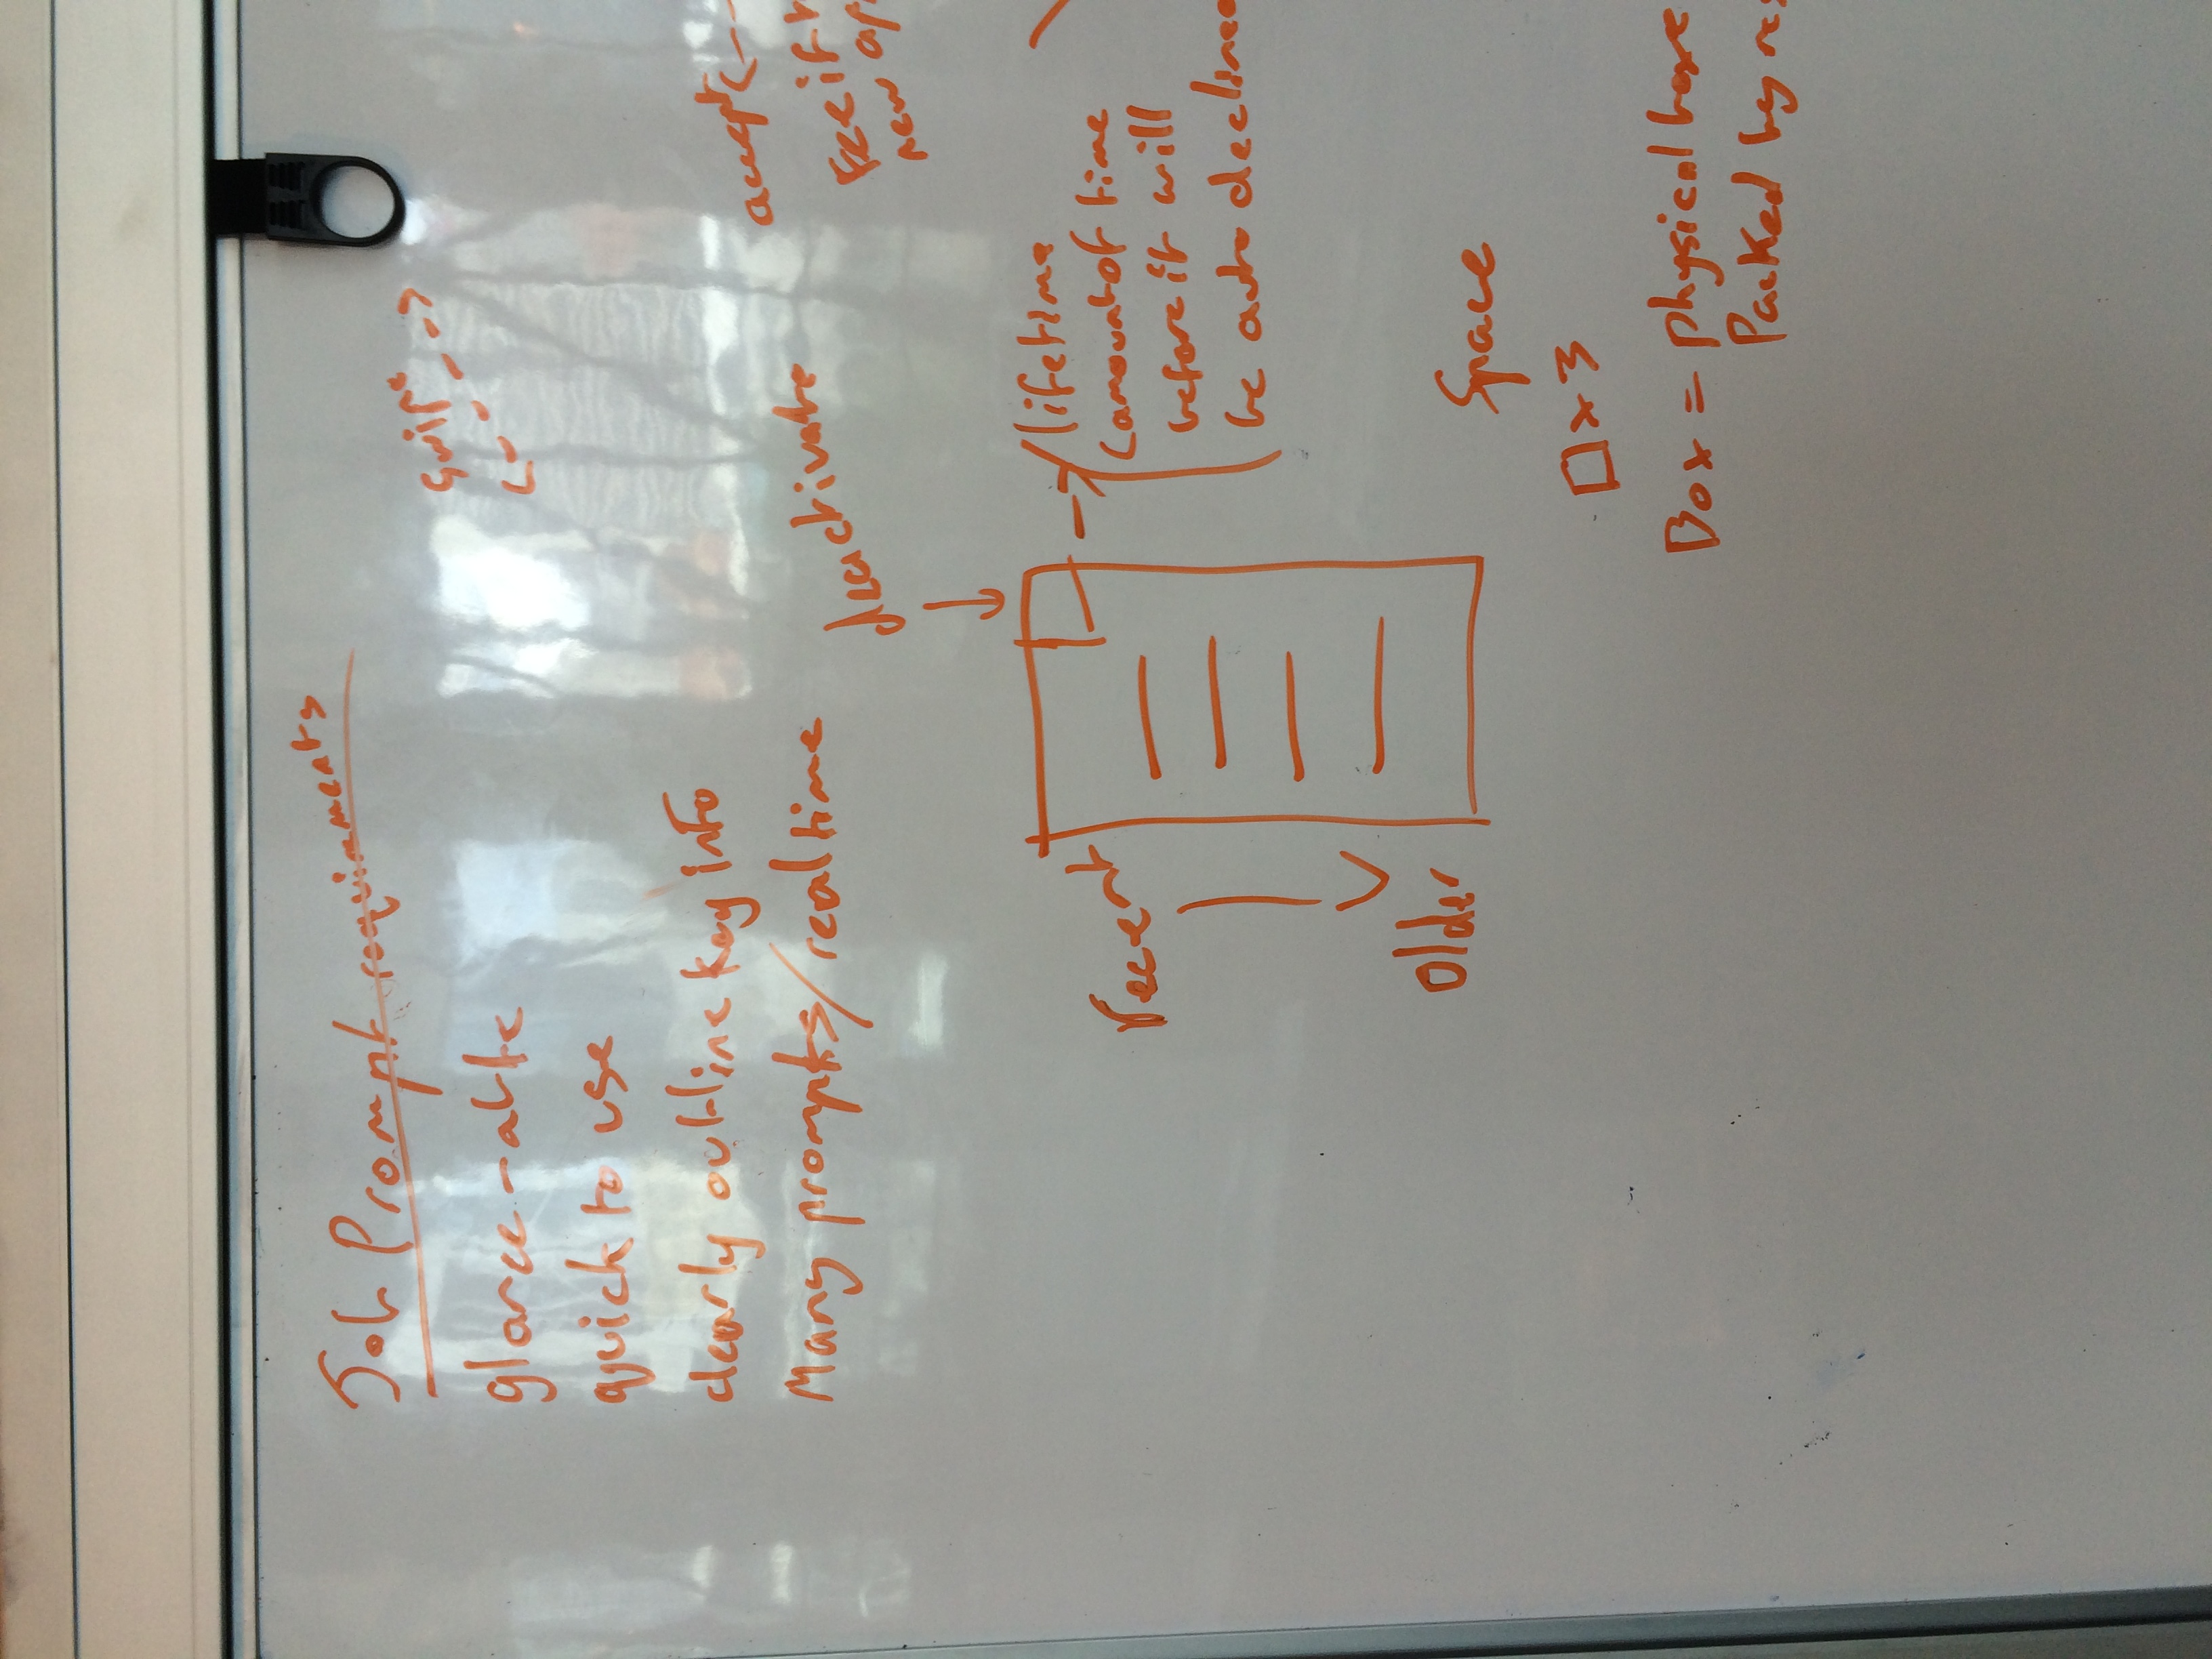 Job Prompt requirements
glance-able
quick to use
clearly outline key info
Many prompts/realtime
swipe
accept
Fee if
new
deactivate
recent
older
lifetime
(amount of time
before it will
be auto declined
Space
□ x 3
Box = physical boxe
Packed by